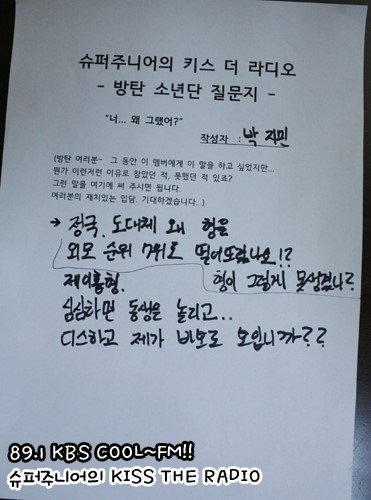 슈퍼주니어의 키스 더 라디오
- 방탄 소년단 질문지 -
"너... 왜 그랬어?"
작성자 : 박 지민
(방탄 여러분~ 그 동안 이 멤버에게 이 말을 하고 싶었지만...
뭔가 이런저런 이유로 참았던 적, 못했던 적 있죠?
그런 말을 여기에 써 주시면 됩니다.
여러분의 재치있는 입담, 기대하겠습니다. )
→ 정국. 도대체 왜 형을
외모 순위 7위로 떨어뜨렸나요!?
형이 그렇게 못생겼나?
제이홉형.
심심하면 동생을 놀리고..
디스하고 제가 바보로 보입니까??
89.1 KBS COOL~FM!!
슈퍼주니어의 KISS THE RADIO